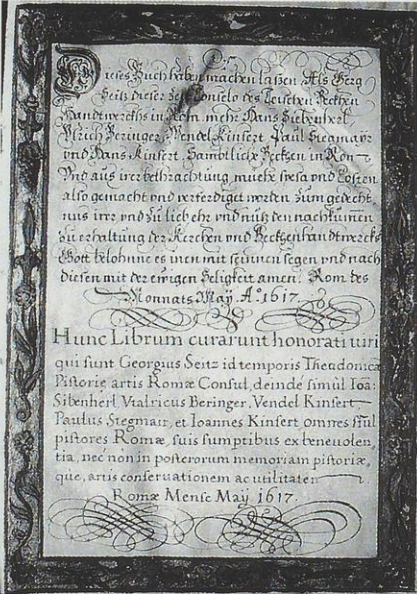 Dieses Buch haben machen laßen Als Gerg
Seitz dieser Zeit Conselo des Teischen Becken
Handtwercks in Rom mehr Hans Sibenherl
Vlrich Beringer, Wendel Kinsert Paul Siegmayr
vnd Hans Kinsert, Sambtliche Becken in Rom
Vnd aus irer bethrachtung muehe spesa vnd Costen
also gemacht vnd verferdiget worden zum gedecht
nus irer vnd zu lieb ehr vnd nutz den nachkummen
zu erhaltung der Kerchen vnd Beckhenhandtwercks
Gott belohnne es inen mit seinnen segen vnd nach
diesen mit der ewigen Seligkeit amen. Rom des
Monnats May. Aº 1617.
Hunc Librum curarunt honorati uiri
qui sunt Georgius Seitz id temporis Theodonicæ
Pistoriæ artis Romæ Consul, deinde simul Ioa:
Sibenherl Vlalricus Beringer, Vendel Kinsert
Paulus Siegmair, et Ioannes Kinsert omnes simul
pistores Romæ, suis sumptibus ex beneuolen,
tia, nec non in posterorum memoriam pistoriæ,
que, artis conseruationem ac utilitatem
Romæ Mense Maÿ 1617.